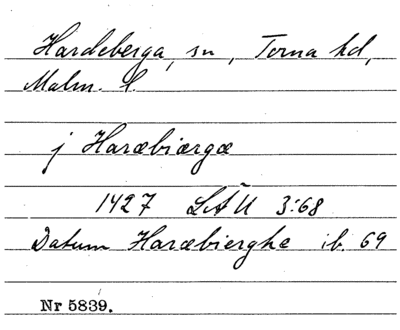 Hardeberga, sn, Torna hd,
Malm. l.
j Haræbiærgæ
1427 LÄU 3:68
Datum Haræbierghe ib. 69
Nr 5839.